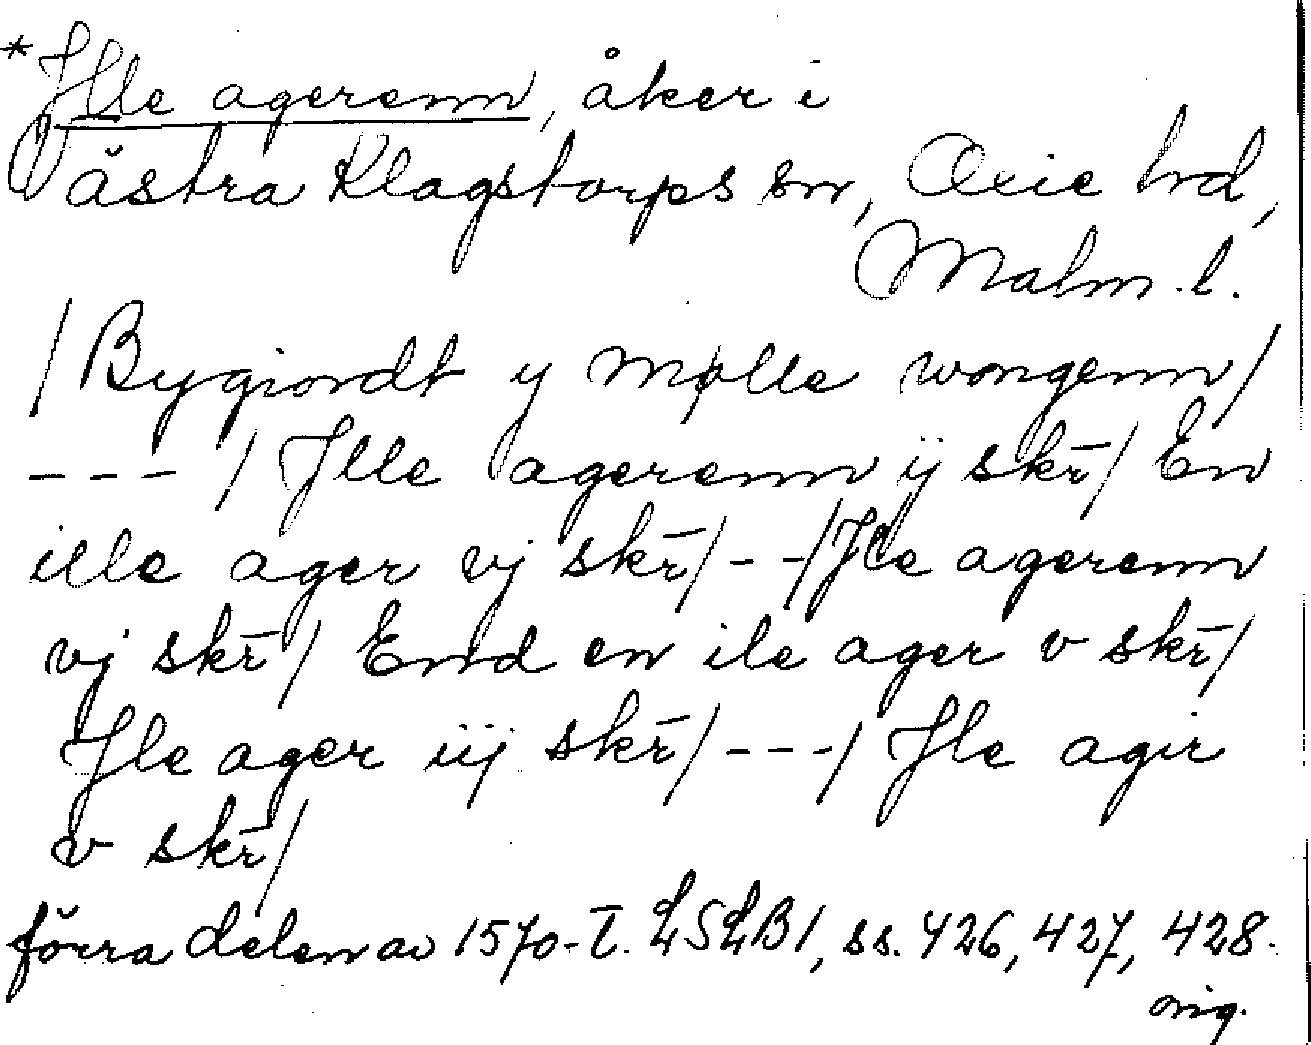 *Jlle agerenn, åker i
Västra Klagstorps sn, Oxie hrd,
Malm. l.
/Bygiordt y Mølle wongenn/
---/ Jlle agerenn ij skr̄/ En
ille ager vj skr̄/--/Jle agerenn
vj skr̄/ End en ile ager v skr̄/
Jle ager iij skr̄/---/ Jle agir
v skr̄/
förra delen av 1570-t. LSLB1, ss. 426, 427, 428.
orig.